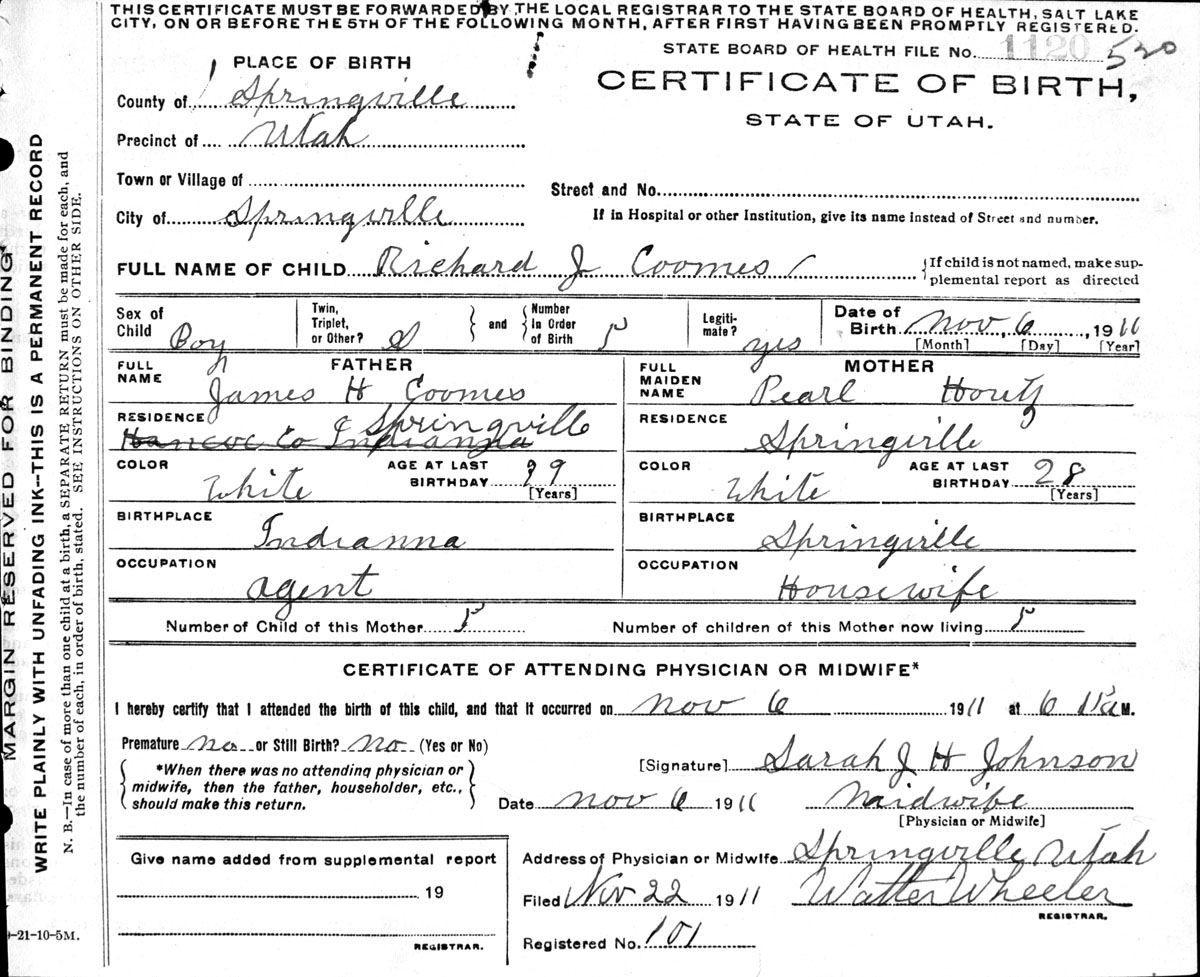 THIS CERTIFICATE MUST BE FORWARDED BY THE LOCAL REGISTRAR TO THE STATE BOARD OF HEALTH, SALT LAKE
CITY, ON OR BEFORE THE 5TH OF THE FOLLOWING MONTH, AFTER FIRST HAVING BEEN PROMPTLY REGISTERED.
STATE BOARD OF HEALTH FILE No. 1120 520
PLACE OF BIRTH
CERTIFICATE OF BIRTH,
STATE OF UTAH.
County of Springville
Precinct of Utah
Town or Village of
Street and No.
City of Springville
If in Hospital or other Institution, give its name instead of Street and number.
FULL NAME OF CHILD Richard J Coomes
{If child is not named, make sup-
plemental report as directed
Sex of Child Boy
Twin, Triplet, or Other? S
and
Number In Order of Birth 5
Legiti-mate? yes
Date of Birth Nov, 6, 1911
[Month] [Day] [Year]
FULL NAME FATHER
James H Coomes
FULL MAIDEN NAME MOTHER
Pearl Houtz
RESIDENCE Springville
Hancoc Co Indianna
RESIDENCE
Springville
COLOR White AGE AT LAST BIRTHDAY 39 [Years]
COLOR White AGE AT LAST BIRTHDAY 28 [Years]
BIRTHPLACE
Indianna
BIRTHPLACE
Springville
OCCUPATION
agent
OCCUPATION
Housewife
Number of Child of this Mother 5
Number of children of this Mother now living 5
CERTIFICATE OF ATTENDING PHYSICIAN OR MIDWIFE*
I hereby certify that I attended the birth of this child, and that it occurred on Nov 6 1911 at 6 15 a M.
Premature no or Still Birth? No (Yes or No)
*When there was no attending physician or
midwife, then the father, householder, etc.,
should make this return.
[Signature] Sarah J H Johnson
Date Nov 6 1911 Midwife
[Physician or Midwife]
Give name added from supplemental report
19
REGISTRAR.
Address of Physician or Midwife Springville Utah
Filed Nov 22 1911 Walter Wheeler
REGISTRAR.
Registered No. 101
MARGIN RESERVED FOR BINDING
WRITE PLAINLY WITH UNFADING INK--THIS IS A PERMANENT RECORD
N. B.—In case of more than one child at a birth, a SEPARATE RETURN must be made for each, and
the number of each, in order of birth, stated. SEE INSTRUCTIONS ON OTHER SIDE.
-21-10-5M.